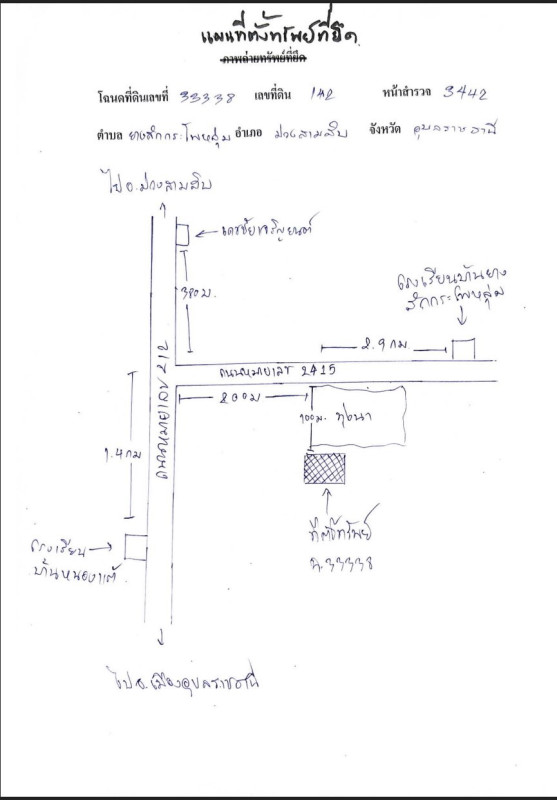 แผนที่ตั้งทรัพย์ที่ยึด
ภาพถ่ายทรัพย์ที่ยึด
โฉนดที่ดินเลขที่ 33338 เลขที่ดิน 142 หน้าสำรวจ 3442
ตำบล ยางสักกระโพหลุ่ม อำเภอ ม่วงสามสิบ จังหวัด อุบลราชธานี
ไป อ.ม่วงสามสิบ
เดชชัยเจริญยนต์
380 ม.
โรงเรียนบ้านยาง
สักกระโพหลุ่ม
2.9 กม
ถนนหมายเลข 2415
ถนนหมายเลข 212
200 ม
100 ม. ทุ่งนา
1.4 กม
ที่ตั้งทรัพย์
ฉ.33338
โรงเรียน
บ้านหนองแต้
ไป อ.เมืองอุบลราชธานี